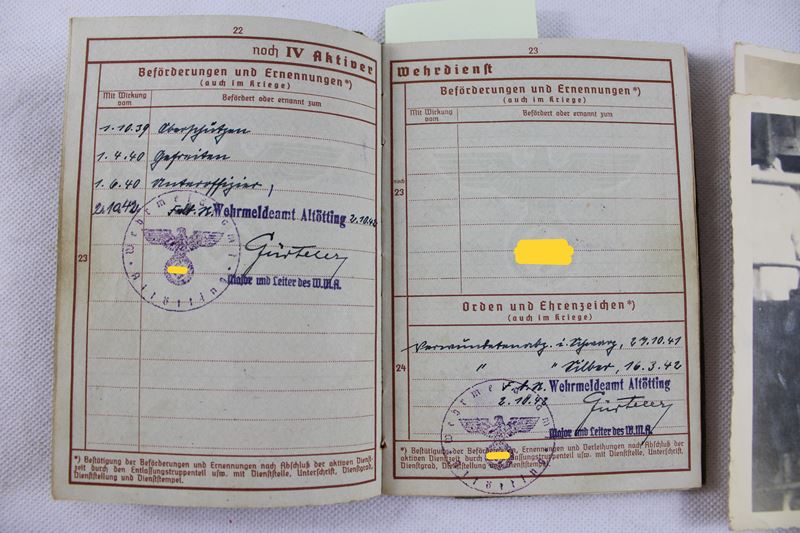 22
noch IV Aktiver
Beförderungen und Ernennungen*)
(auch im Kriege)
Mit Wirkung vom
Befördert oder ernannt zum
1.10.39 Oberschützen
1.4.40 Gefreiten
1.6.40 Unteroffizier,
2.10.42 Wehrmeldeamt Altötting 2.10.42
23
Major und Leiter des W.M.A.
Wehrmeldeamt Altötting
*) Bestätigung der Beförderungen und Ernennungen nach Abschluß der aktiven Dienst-
zeit durch den Entlassungstruppenteil usw. mit Dienststelle, Unterschrift, Dienstgrad,
Dienststellung und Dienststempel.
23
Wehrdienst
Beförderungen und Ernennungen*)
(auch im Kriege)
Mit Wirkung vom
Befördert oder ernannt zum
noch
23
Orden und Ehrenzeichen*)
(auch im Kriege)
Verwundetenabz. i. Schwarz, 27.10.41
" " Silber, 16.3.42
24
Wehrmeldeamt Altötting
2.10.42
Major und Leiter des W.M.A.
*) Bestätigung der Beförderungen, Ernennungen und Verleihungen nach Abschluß der
aktiven Dienstzeit durch Entlassungstruppenteil usw. mit Dienststelle, Unterschrift,
Dienstgrad, Dienststellung und Dienststempel.